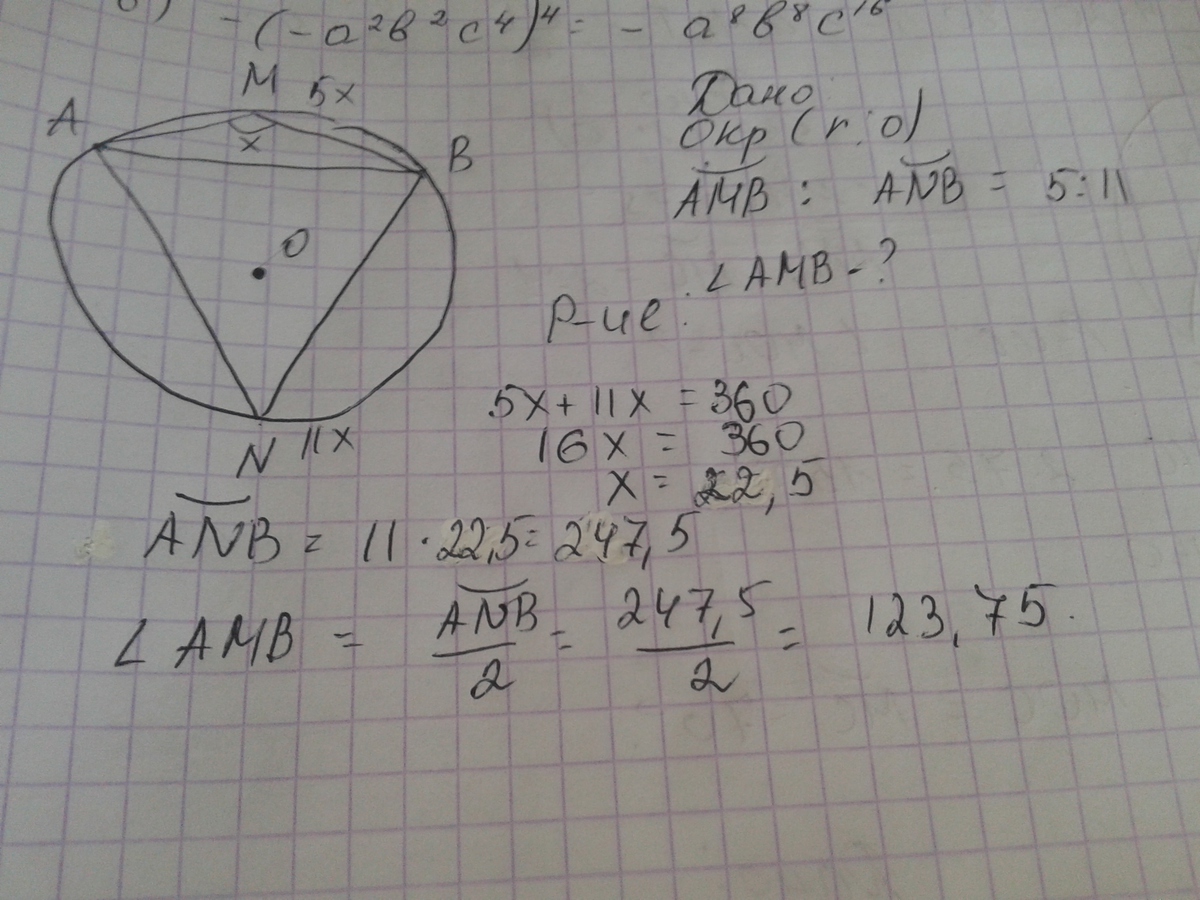 б) -(-a²b²c⁴)⁴ = - a⁸b⁸c¹⁶
M 5x
A
x
B
O
N 11x
Дано
Окр (r; o)
AMB : ANB = 5:11
∠AMB - ?
Р-ие:
5x + 11x = 360
16x = 360
x = 22,5
ANB = 11 · 22,5 = 247,5
∠AMB = ANB/2 = 247,5/2 = 123,75.